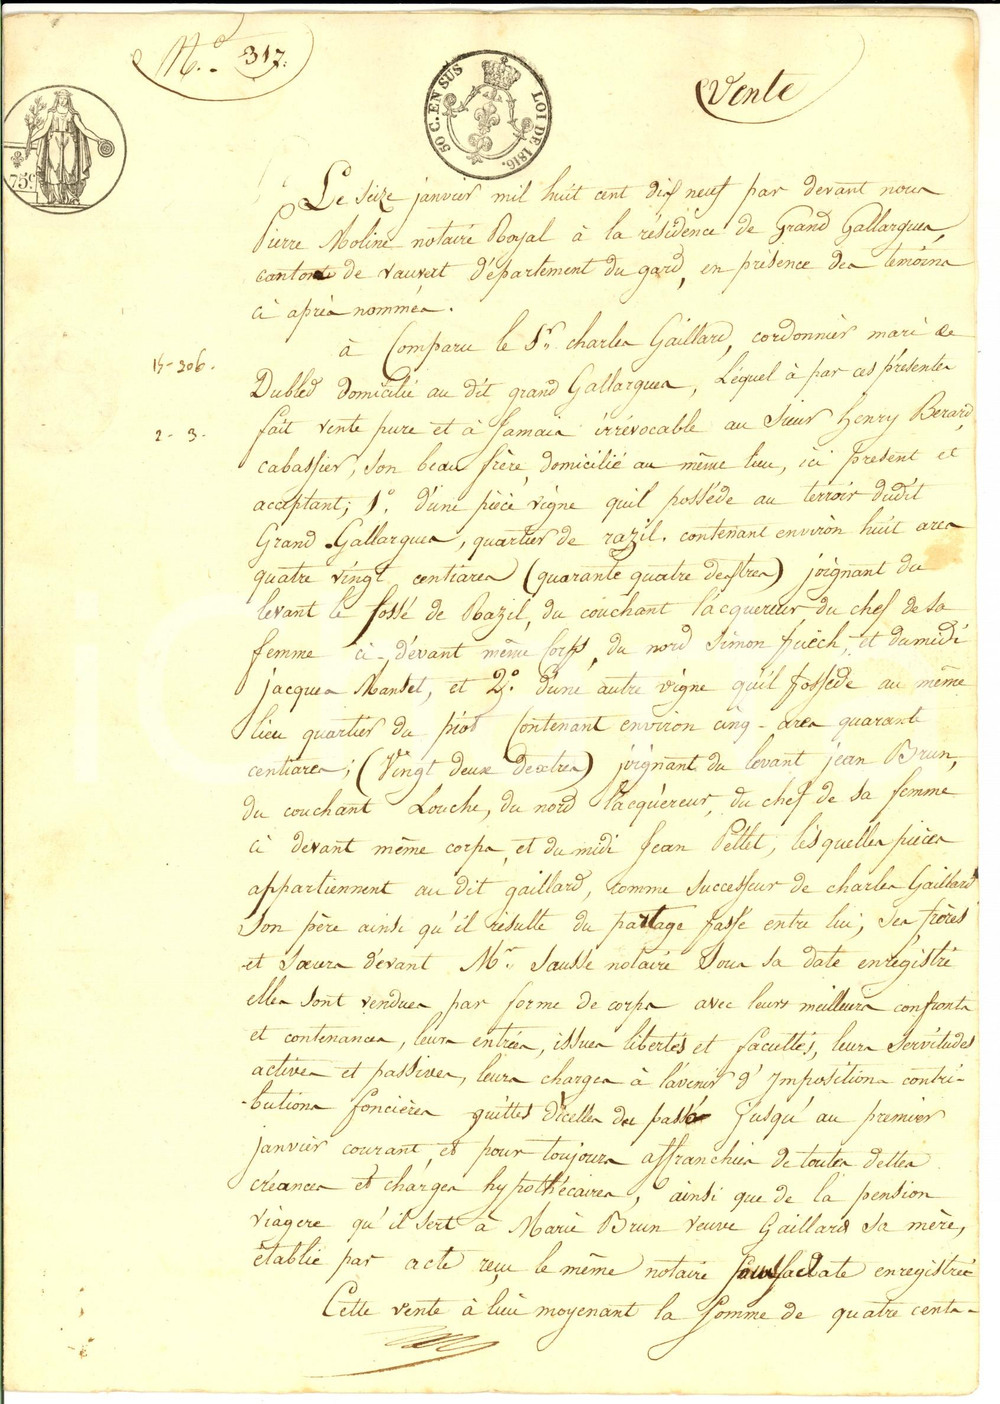 N.º 317.
Vente
50 C. EN SUS LOI DE 1816.
75c
Le seize janvier mil huit cent dix neuf par devant nous
Pierre Moline notaire Royal à la résidence de Grand Gallargues,
canton de vauvert département du gard, en présence des temoins
ci après nommés.
à Comparu le Sr. charles Gaillard, cordonnier marié de
15-306.
Dubled domicilié au dit grand Gallargues, Léquel à par ces présentes
fait vente pure et à Jamais irrévocable au Sieur henry Berard,
2-3.
cabassier, son beau frère, domicilié au même lieu, ici present et
acceptant; 1º. d'une pièce vigne qu'il possède au terroir dudit
Grand Gallargues, quartier de razil. contenant environ huit ares
quatre vingt centiares (quarante quatre destres) joignant du
levant le fossé de Razil, du couchant l'acquereur du chef de sa
femme ci-dévant même Corps, du nord Simon fuech, et du midi
jacques Mansel, et 2º. d'une autre vigne qu'il possède au même
lieu quartier du piot Contenant environ cinq-ares quarante
centiares; (Vingt deux dextres) joignant du levant jean Brun,
du couchant Louche, du nord l'acquéreur, du chef de sa femme
ci devant même corps, et du midi Jean Pellet, lésquelles pièces
appartiennent au dit gaillard, comme successeur de charles Gaillard
Son père ainsi qu'il résulte du partage passé entre lui, ses frères
et soeurs dévant Mr. Sausse notaire Sous sa date enrégistré
elles sont vendues par forme de corps avec leurs meilleurs confronts
et contenances, leurs entrées, issues libertés et facultés, leurs Servitudes
actives et passives, leurs charges à l'avenir d'Impositions contri-
-butions foncières quittes d'icelles du passé jusqu'au premier
janvier courant, et pour toujours affranchies de toutes dettes
créances et charges hypothécaires, ainsi que de la pension
viagere qu'il sert à Marie Brun veuve Gaillard sa mère,
établie par acte reçu le même notaire sous sa date enregistrée
Cette vente à lieu moyenant la Somme de quatre cents-